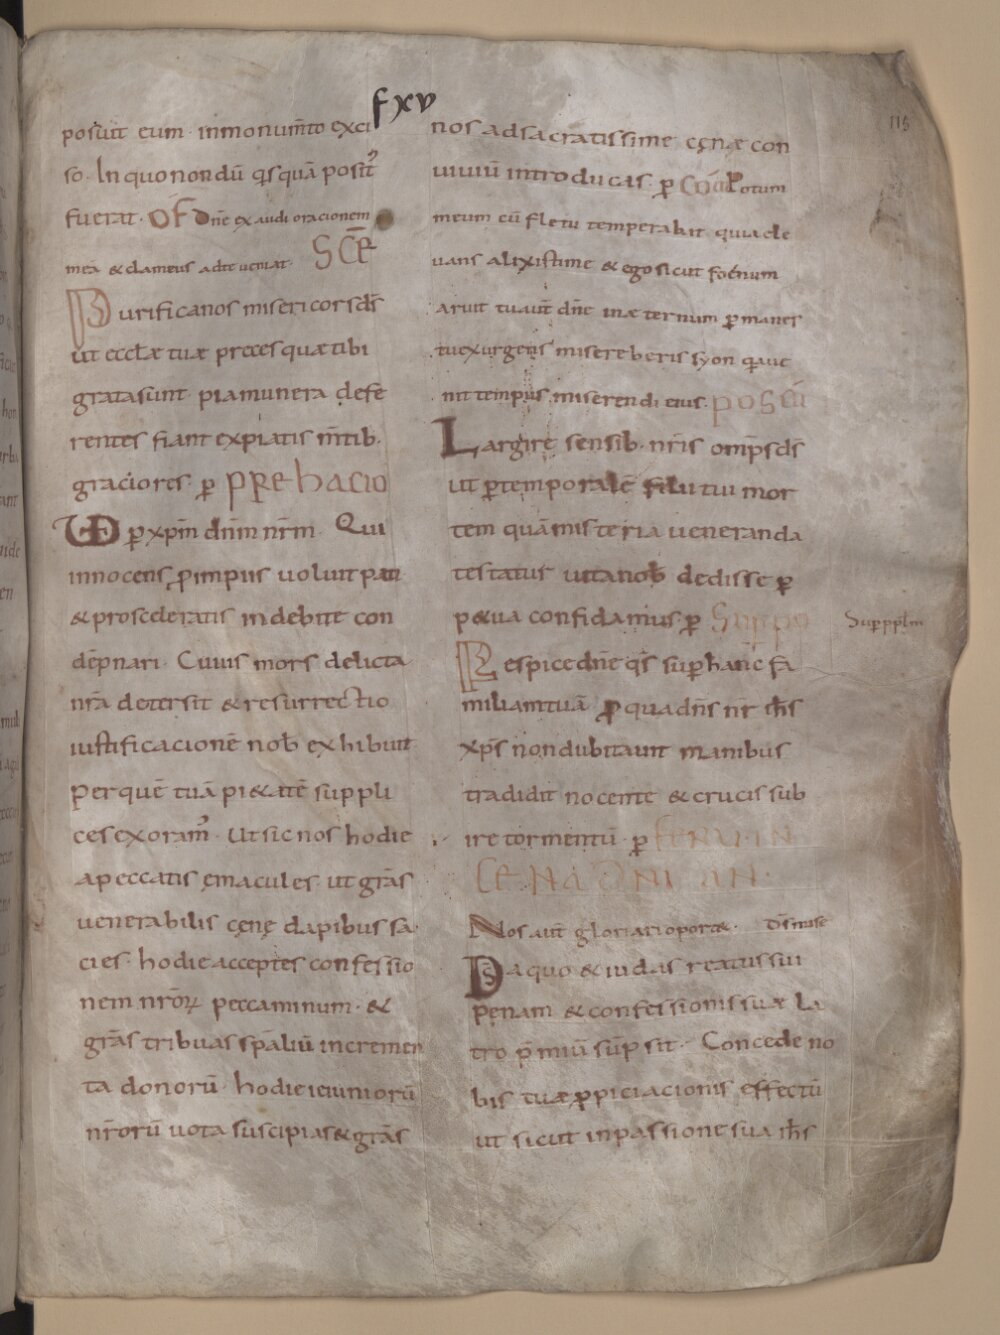 fxv
115
posuit eum · inmonum̄to exci
so · Inquonondū qsquā posit᾽
fuerat · OF Dn̄e exaudi oracionem
meā & clameus adte ueniat · SC̄R
Purificanos misericorsds̄
ut eccl̄æ tuæ preces quætibi
gratasunt · piamunera defe
rentes fiant expiatis m̄tib·
graciores · ꝑ PREhACIO
VD ꝑ xpm̄ dnm̄ nrm̄ · Qui
innocens ꝓimpiis uoluit pati
& prosceleratis indebite con
dēpnari · Cuius mors delicta
nr̄a detersit & resurrectio
iustificacionē nob̄ exhibuit
Per quē tuā pi&atē suppli
ces exoram᾽ · Ut sic nos hodie
apeccatis ęmacules · ut grās
uenerabilis cęnę dapibus sa
cies · hodie acceptes confessio
nem nr̄oꝝ peccaminum · &
grās tribuas spāliū incremen
ta donorū · hodie ieiuniorū
nr̄orū uota suscipias & grās
nos adsacratissime cęnæ con
uiuiū introducas · ꝑ COM̄ Potum
meum cū fletu temperabit quia ele
uans alixistime & ego sicut foenum
aruit tu aut̄ dn̄e in æternum ꝑmanes
tu exurgens misereberis syon q̄a ue
nit tempus miserendi eius · POSCŪ
Largire sensib· nr̄is omp̄sds̄
ut ꝑtemporalē filii tui mor
tem quā misteria ueneranda
testatur uitā nob̄ dedisse ꝑ
p&ua confidamus · ꝑ Suppo
Supppl̄m
Respice dn̄e qs̄ sup̄ hanc fa
miliam tuā ꝓ qua dn̄s nr̄ ih̄s
xps̄ non dubitauit manibus
tradidit nocente & crucis sub
ire tormentū · ꝑ FERIA · V · IN
CENA DNI · AN ·
Nos aut̄ gloriari oport& · Ds̄ mise
Ds̄ a quo & iudas reatus sui
penam & confessionis suæ la
tro p̄miū sūp sit · Concede no
bis tuæ ꝓpiciacionis effectū
ut sicut in passione sua ih̄s